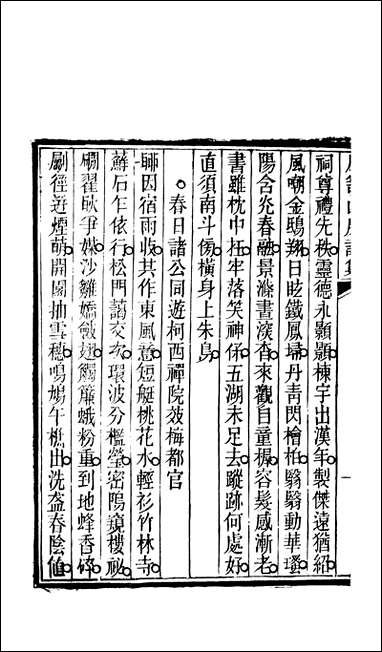 祠尊禮先秩靈德永顥顥棟宇出漢年製傑遠猶紹
風嘲金鴟翔日眩鐵鳳埽丹青閃檜柏翳翳動華璗
陽含兊春融景滌晝淡香來觀自童穉容髮感漸老
書雖枕中枉牢落笑神保五湖未足去蹤跡何處好
直須南斗傷橫身上朱鳥
春日諸公同遊柯西禪院效梅都官
聊因宿雨收其作東風意短艇桃花水輕衫竹林寺
蘚石乍依行松門藹交次環波分檻瑩密陽窺樓祕
磵翟耿尹媒沙雛嬌斂翅觸簾蛾粉重到地蜂香降
屬徑近煙萌開園抽雪穗鳴鳩午樵出洗盞春陰値